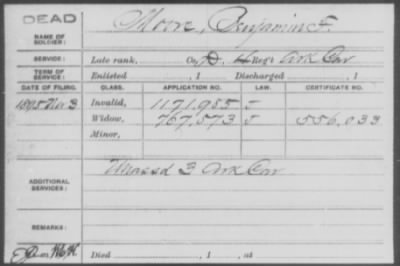 DEAD
NAME OF SOLDIER: Moore, Benjamin F.
SERVICE: Late rank, Co. D, Reg't Ark Cav
TERM OF SERVICE: Enlisted , 1 Discharged , 1
DATE OF FILING. CLASS. APPLICATION NO. LAW. CERTIFICATE NO.
1895 Nov 3 Invalid, 1191,985 5
Widow, 767,573 5 556,033
Minor,
ADDITIONAL SERVICES: Unassd 3 Ark Cav
REMARKS:
Died , 1 , at